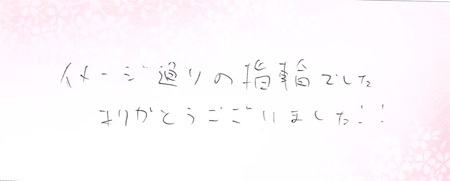 イメージ通りの指輪でした
ありがとうございました!!